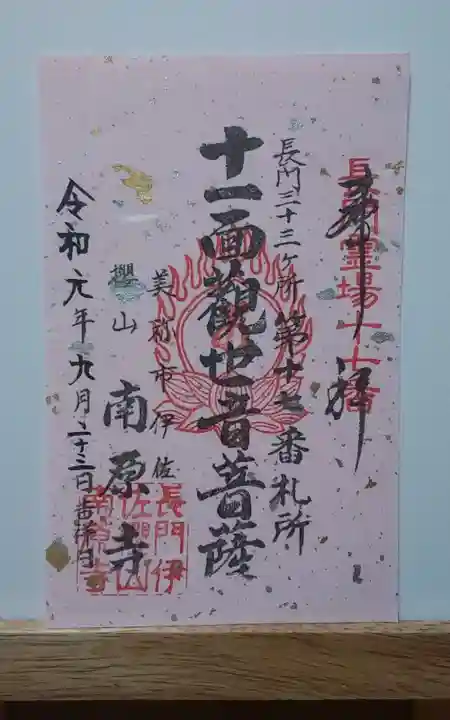 奉拝
長門霊場十七番
長門三十三ヶ所第十七番札所
十一面観世音菩薩
美祢市伊佐
櫻山 南原寺
長門伊佐櫻山南原寺
令和元年九月二十三日吉祥日